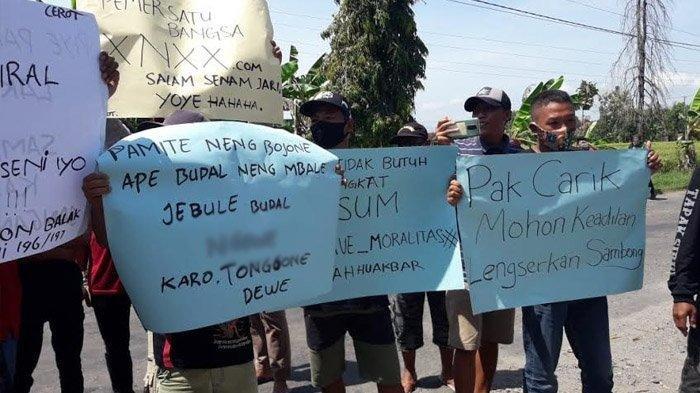 CEROT
VIRAL
SENI IYO
!!!
ON BALAK
196/197
PEMERSATU
BANGSA
XNXX.COM
SALAM SENAM JARI
YOYE HAHAHA.
PAMITE NENG BOJONE
APE BUDAL NENG MBALE
JEBULE BUDAL
KARO. TONGGONE
DEWE
TIDAK BUTUH
NGKAT
SUM
VE_MORALITAS#
AHHUAKBAR
Pak Carik
Mohon Keadilan
Lengserkan Sambong
TAPAK SUCI